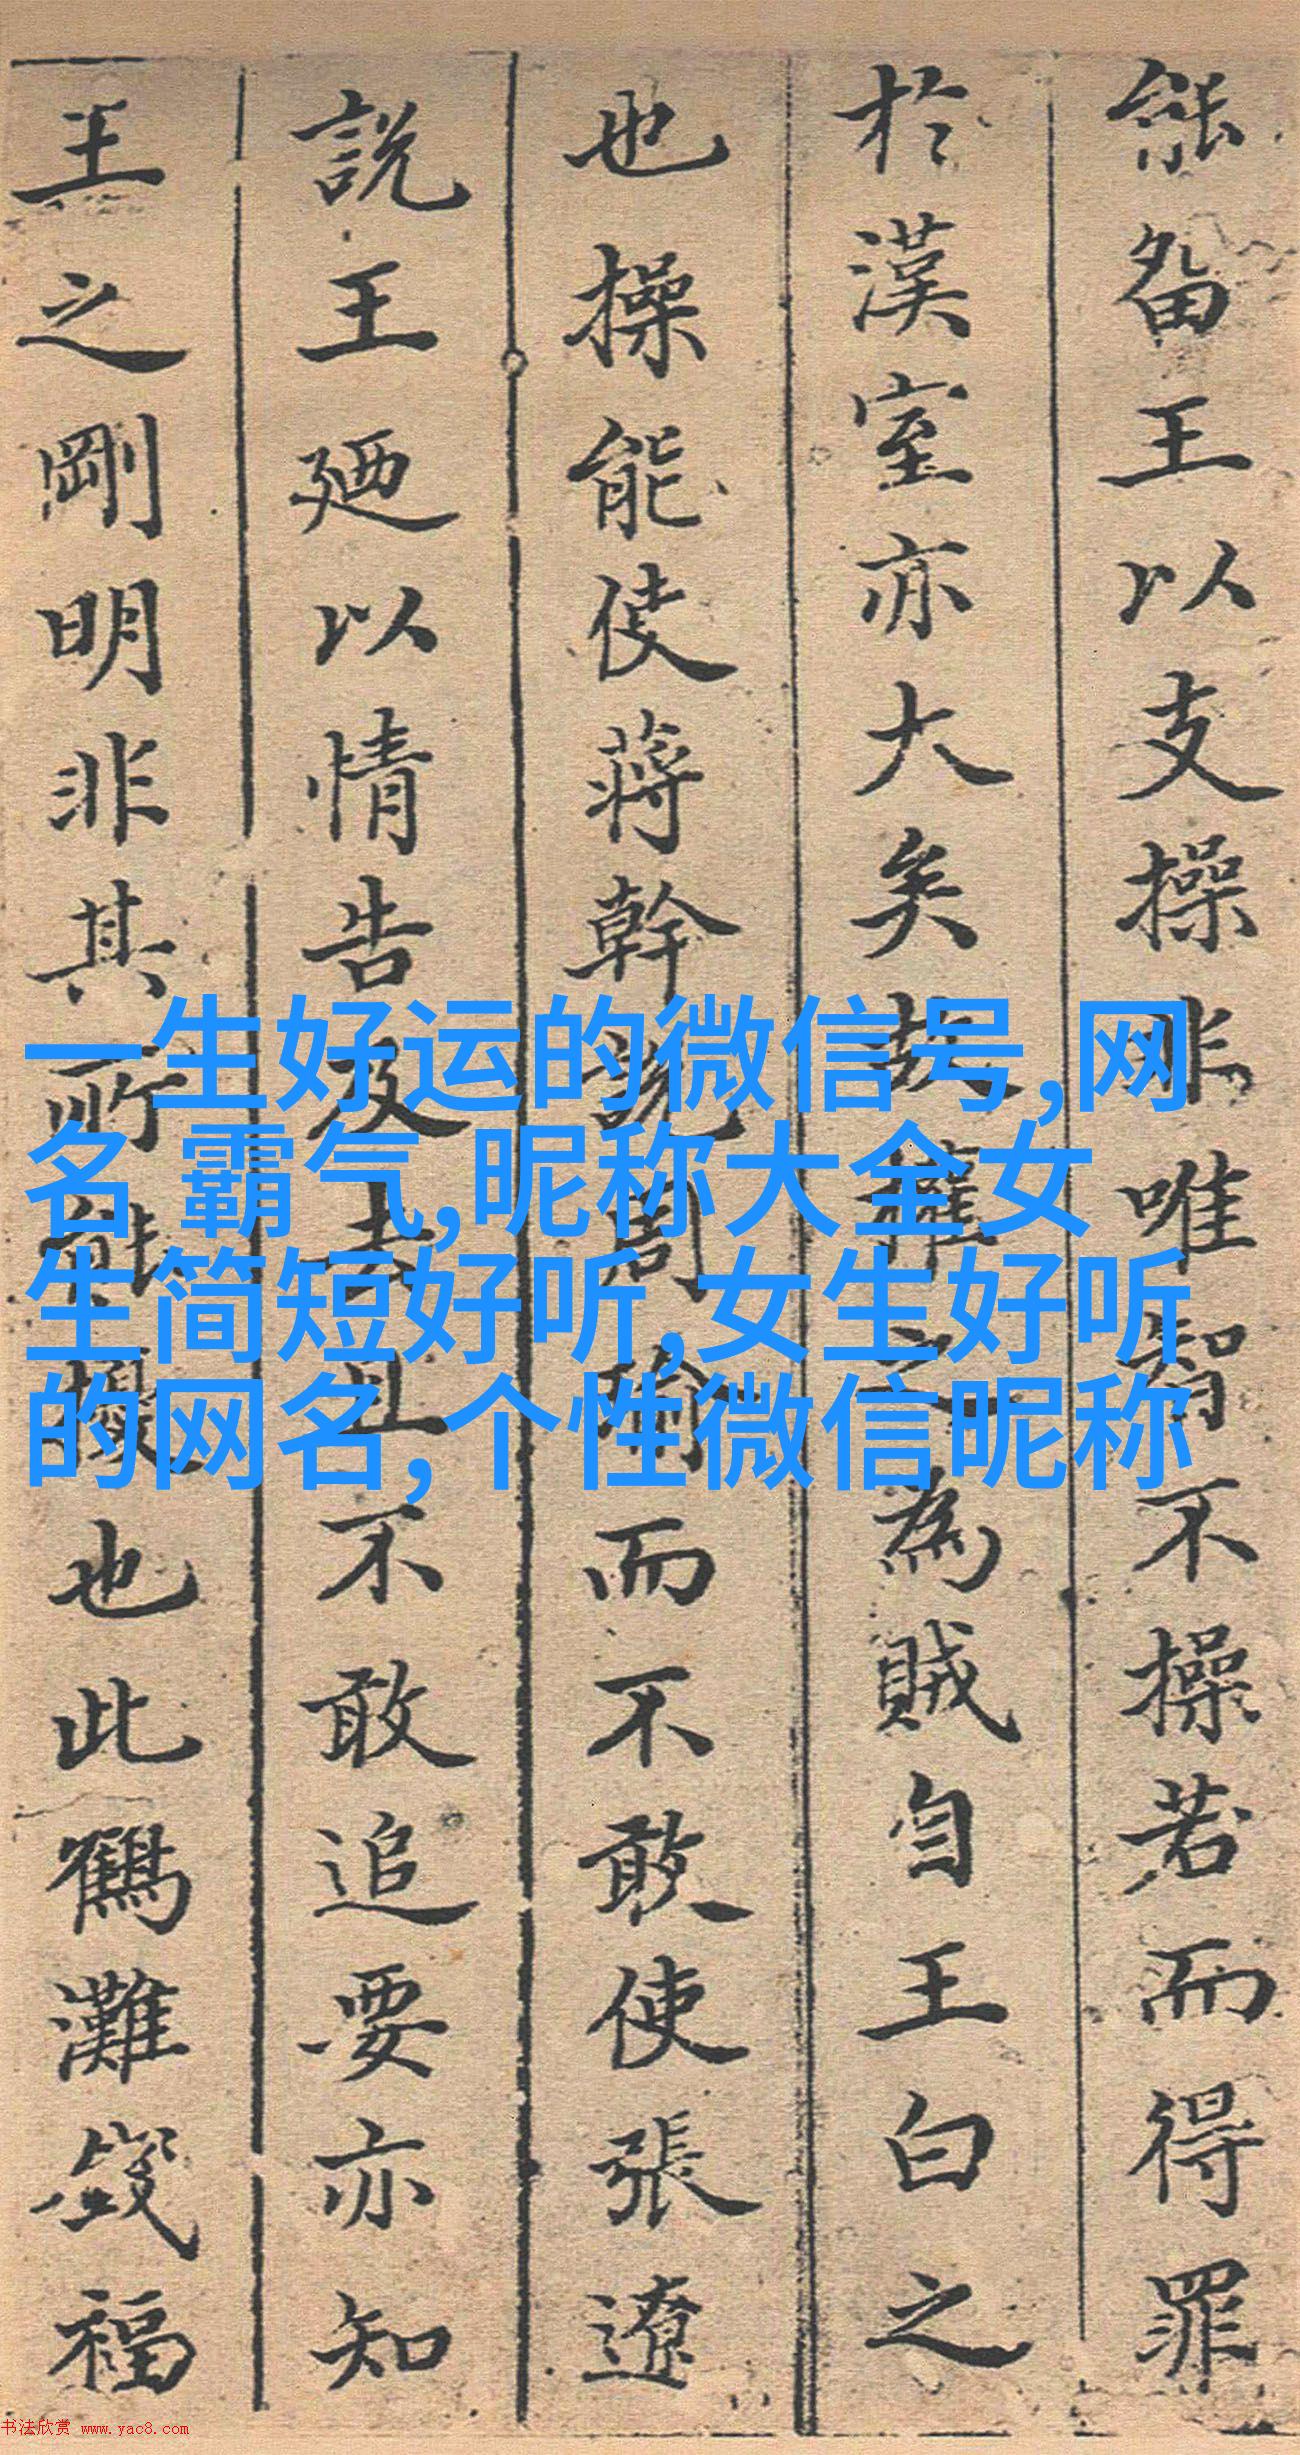 能留王以支操非唯智不操若而得罪
於漢室亦大矣故權之為賊自王白之
也操能使蔣幹説周瑜而不敢使張遼
説王廼以情告及去且不敢追要亦知
王之剛明非其所能擾也此鶴灘錢福
一生好运的微信号,网
名 霸气,昵称大全女
生简短好听,女生好听
的网名,个性微信昵称
书法欣赏 www.yac8.com